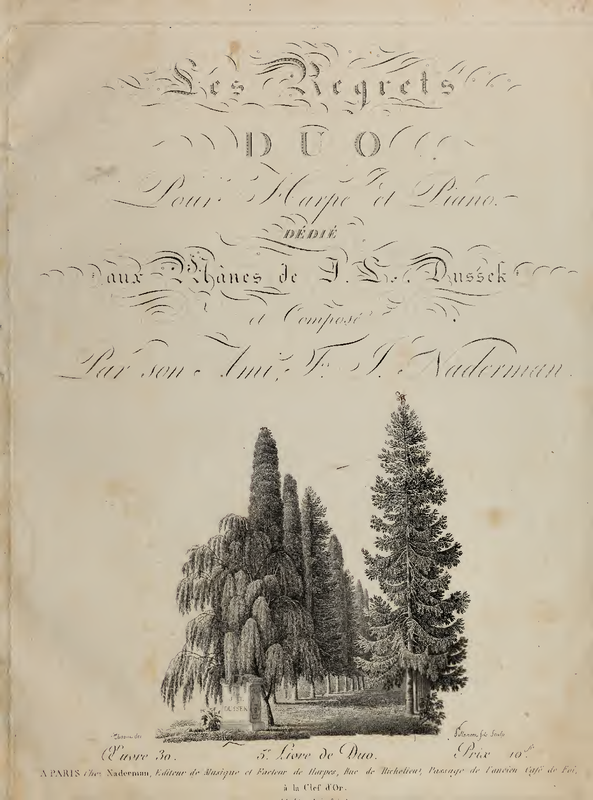 Les Regrets
DUO
Pour Harpe et Piano.
DÉDIÉ
aux Manes de J. L. Dussek
et Composé
Par son Ami, F. J. Naderman.
DUSSEK
Œuvre 30. 5e. Livre de Duo. Prix 10f.
A PARIS Chez Naderman, Editeur de Musique et Facteur de Harpes, Rue de Richelieu, Passage de l'ancien Café de Foi,
à la Clef d'Or.